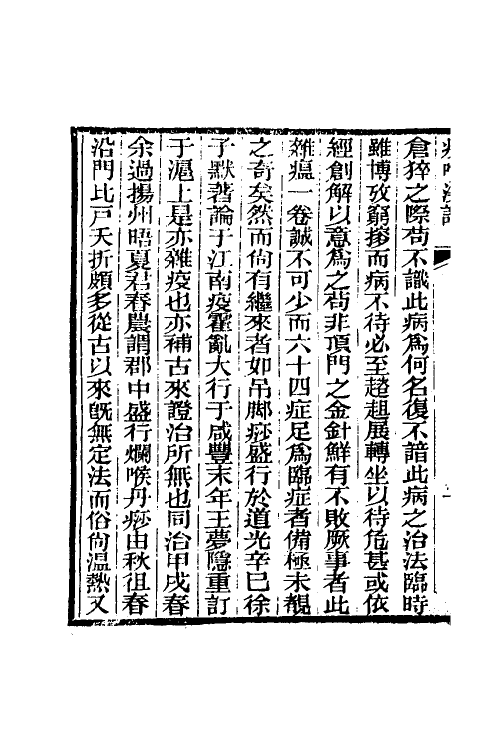 倉猝之際苟不識此病爲何名復不諳此病之治法臨時
雖博攷窮搜而病不待必至趦趄展轉坐以待危甚或依
經創解以意爲之苟非頂門之金針鮮有不敗厥事者此
雜瘟一卷誠不可少而六十四症足爲臨症者備極未覩
之奇矣然而尙有繼來者如吊脚痧盛行於道光辛巳徐
子默著論于江南疫霍亂大行于咸豐末年王夢隱重訂
于滬上是亦雜疫也亦補古來證治所無也同治甲戌春
余過揚州晤夏君春農謂郡中盛行爛喉丹痧由秋徂春
沿門比戸夭折頗多從古以來旣無定法而俗尙溫熱又